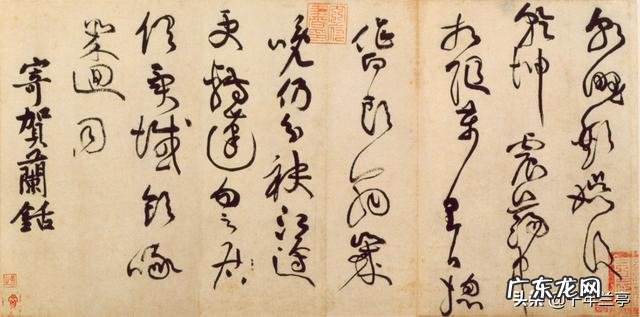 朝野歡娛後
乾坤震蕩中
相隨萬里日總
作白頭翁歲
晚仍分袂江邊
更轉蓬勿云居
俱異域飲啄
幾迴同
寄賀蘭銛
广东龙网
头条
年兰亭